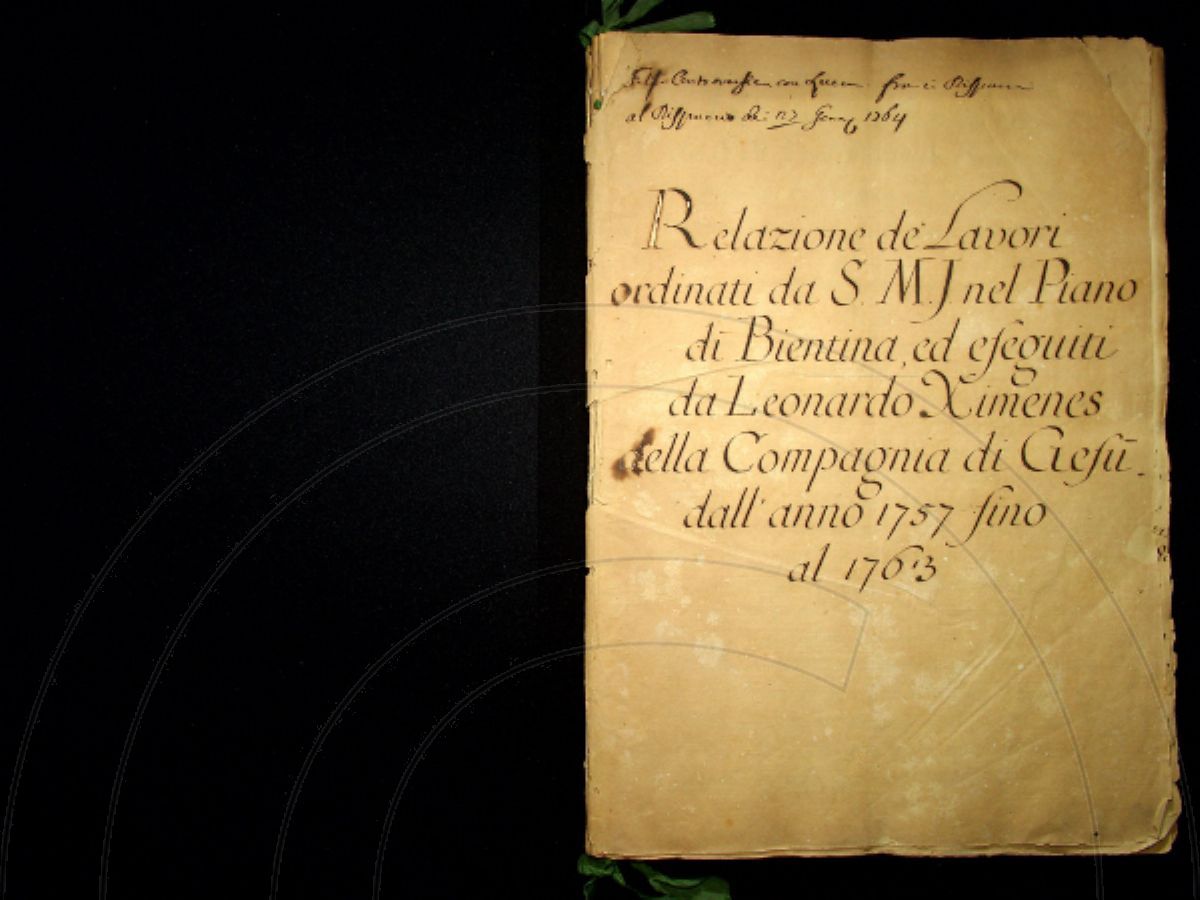 Controversia con Lucca fra i
al de: 17 Genn 1764
Relazione de' Lavori
ordinati da S. M. J nel Piano
di Bientina, ed eſeguiti
da Leonardo Ximenes
della Compagnia di Gieſù
dall' anno 1757 ſino
al 1763